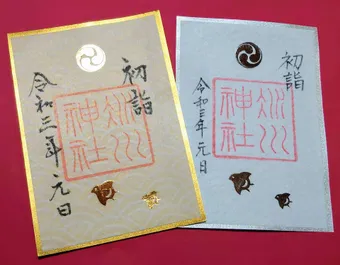 初詣
氷川
神社
令和三年 元日
初詣
氷川
神社
令和三年 元日